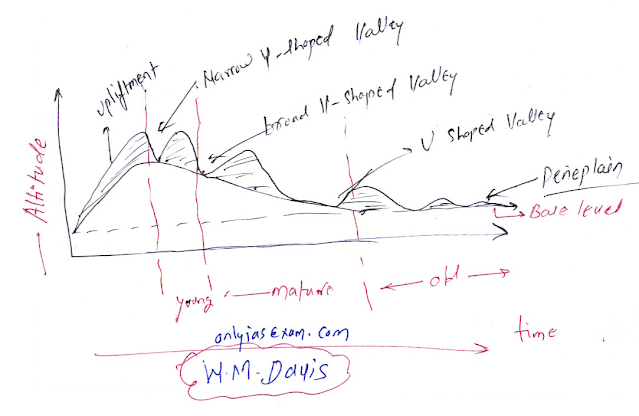 Narrow V-shaped Valley
upliftment
broad V-shaped Valley
U shaped Valley
Peneplain
Base level
Altitude
young
mature
old
onlyiasExam.com
time
W.M. Davis